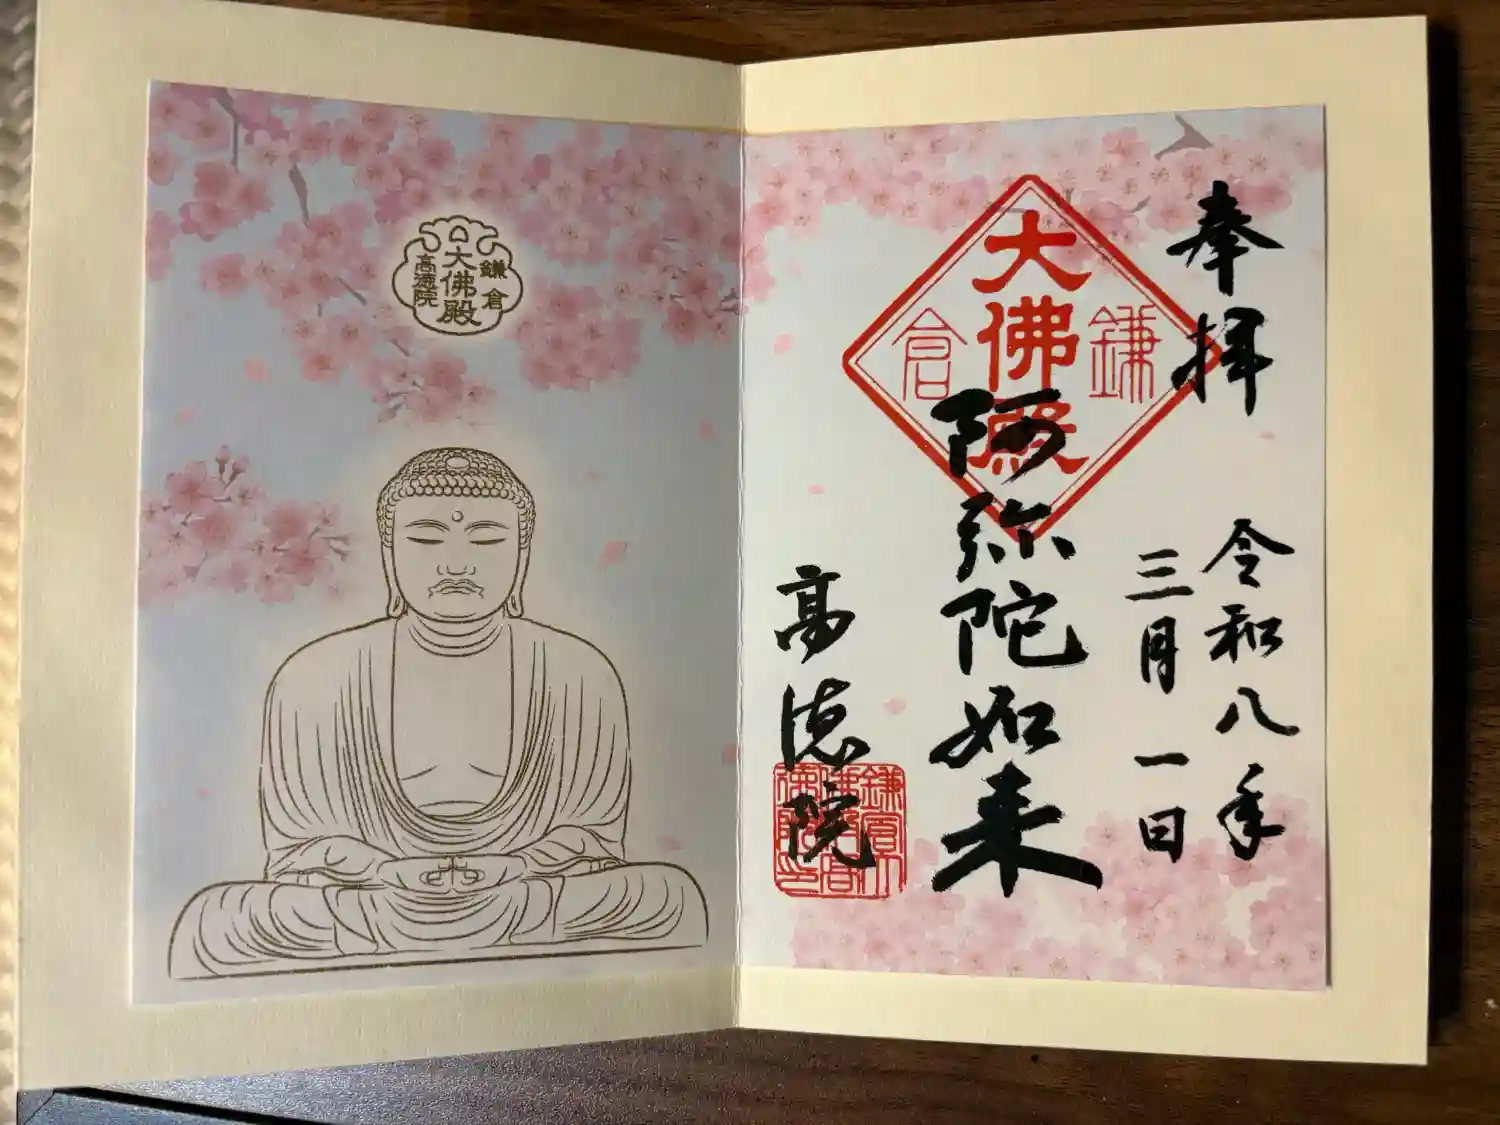 奉拝
令和八年
三月一日
鎌倉
大佛殿
阿弥陀如来
高徳院
鎌倉
大佛殿
高徳院